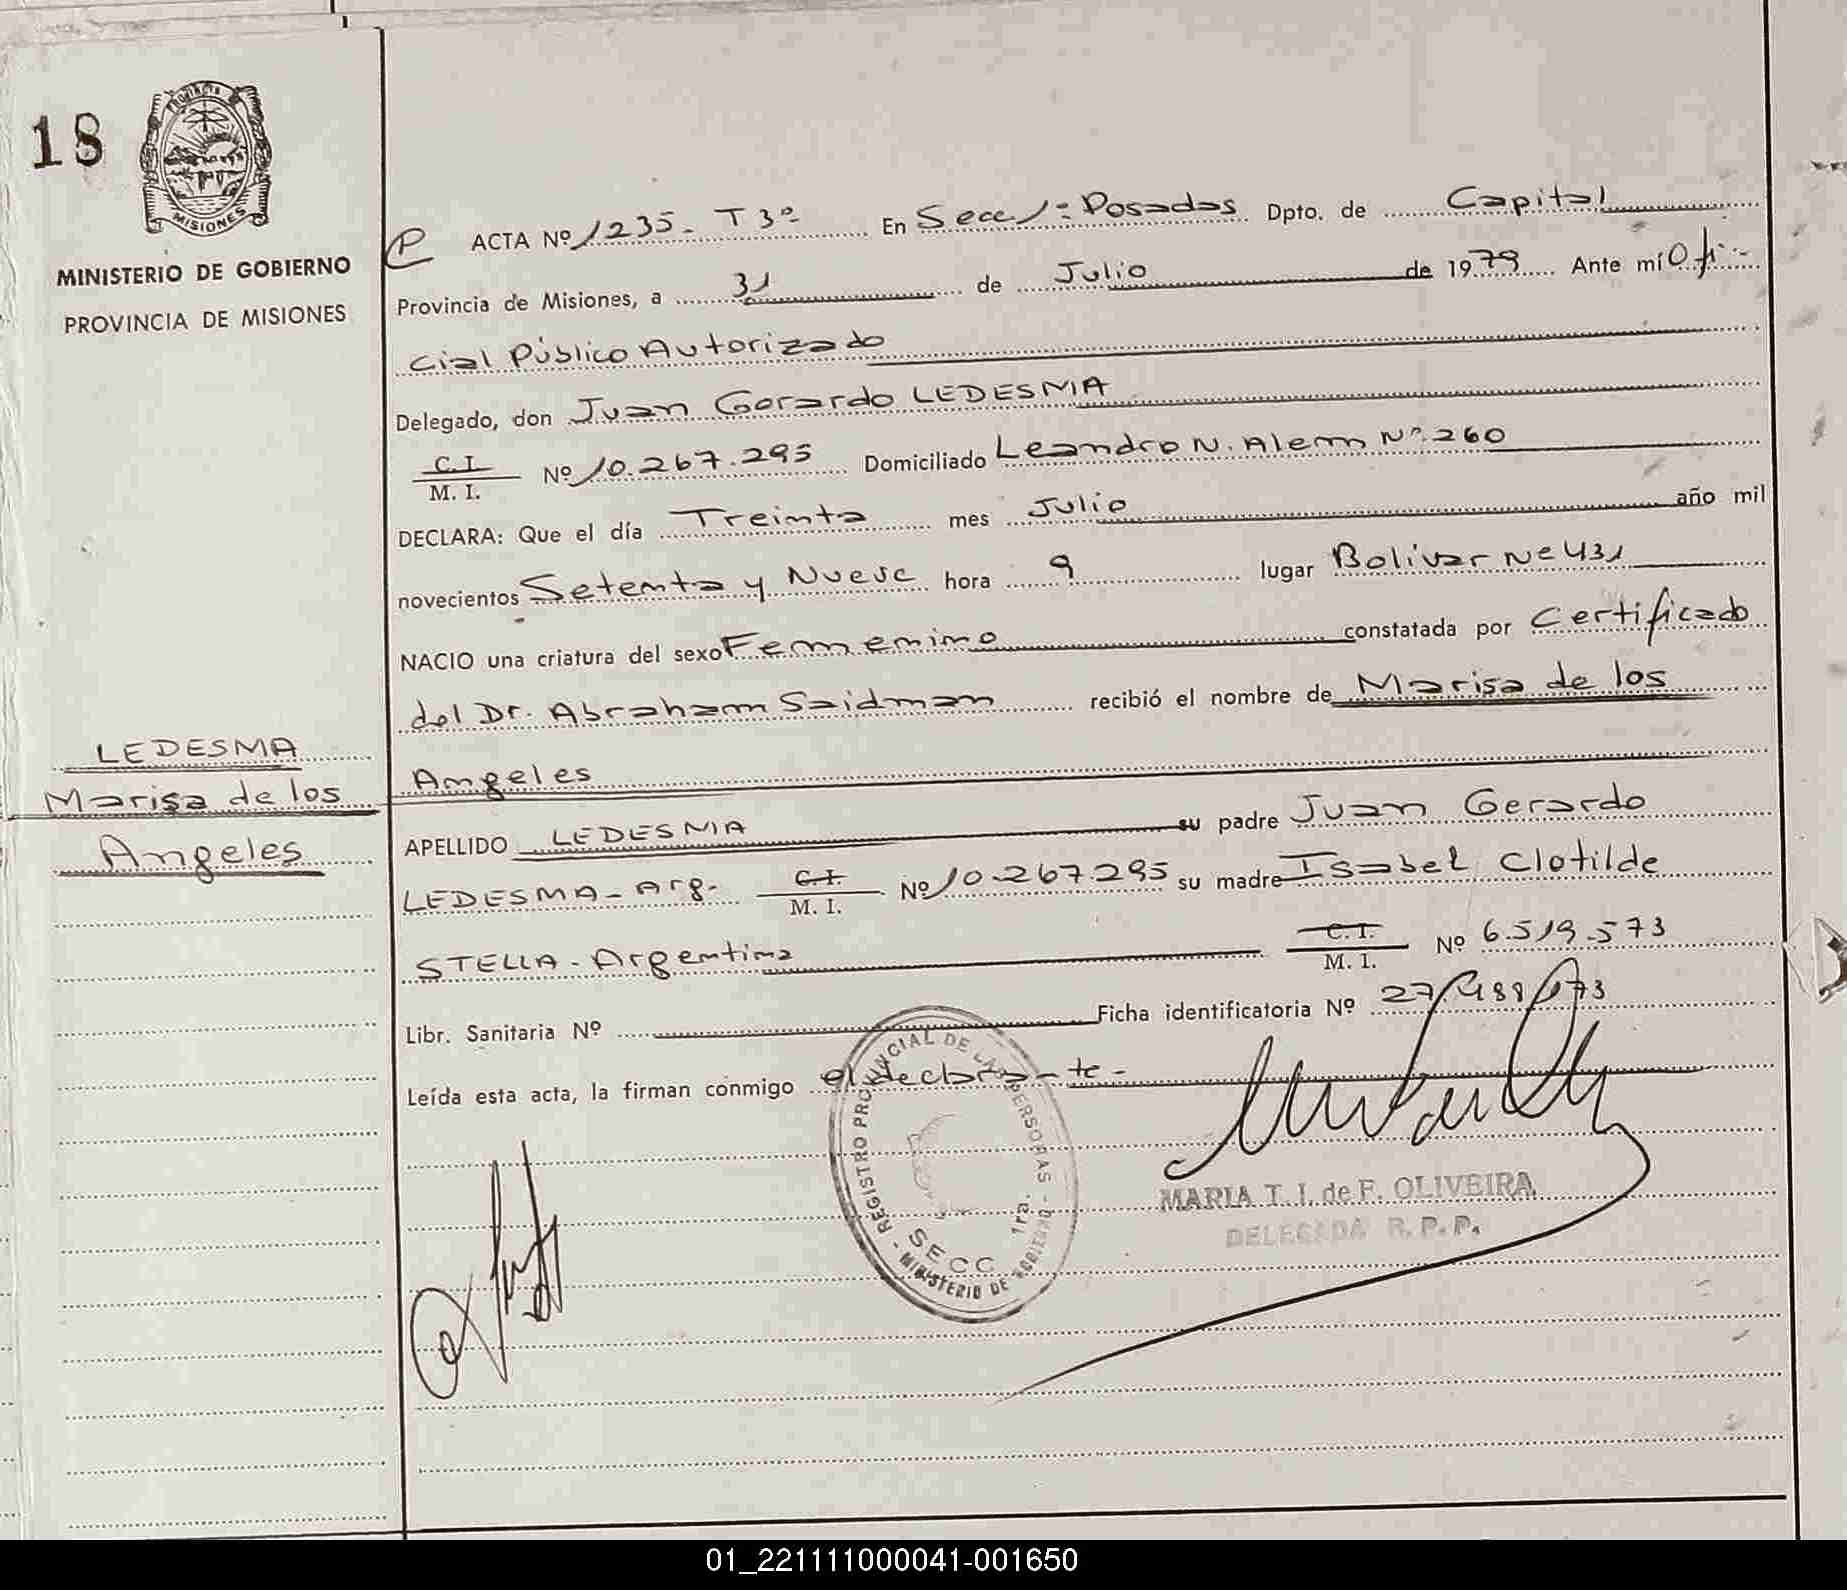 18
PROVINCIA
MISIONES
MINISTERIO DE GOBIERNO
PROVINCIA DE MISIONES
LEDESMA
Marisa de los
Angeles
P ACTA Nº 1235- T 3º En Secc 1ª Posadas Dpto. de Capital
Provincia de Misiones, a 31 de Julio de 1979 Ante mí Ofi-
cial Público Autorizado
Delegado, don Juan Gerardo LEDESMA
C.I.
M. I. Nº 10.267.295 Domiciliado Leandro N. Alem Nº 260
DECLARA: Que el día Treinta mes Julio año mil
novecientos Setenta y Nueve hora 9 lugar Bolivar Nº 431
NACIO una criatura del sexo Femenino constatada por Certificado
del Dr. Abraham Saidman recibió el nombre de Marisa de los
Angeles
APELLIDO LEDESMA su padre Juan Gerardo
LEDESMA - Arg. C.I.
M. I. Nº 10.267.295 su madre Isabel Clotilde
STELLA - Argentina C.I.
M. I. Nº 6.519.573
Libr. Sanitaria Nº Ficha identificatoria Nº 27.488.173
Leída esta acta, la firman conmigo el declarante-
REGISTRO PROVINCIAL DE LAS PERSONAS - MINISTERIO DE GOBIERNO -
SECC 1ra.
MARIA T. I. de F. OLIVEIRA
DELEGADA R. P. P.
01_221111000041-001650